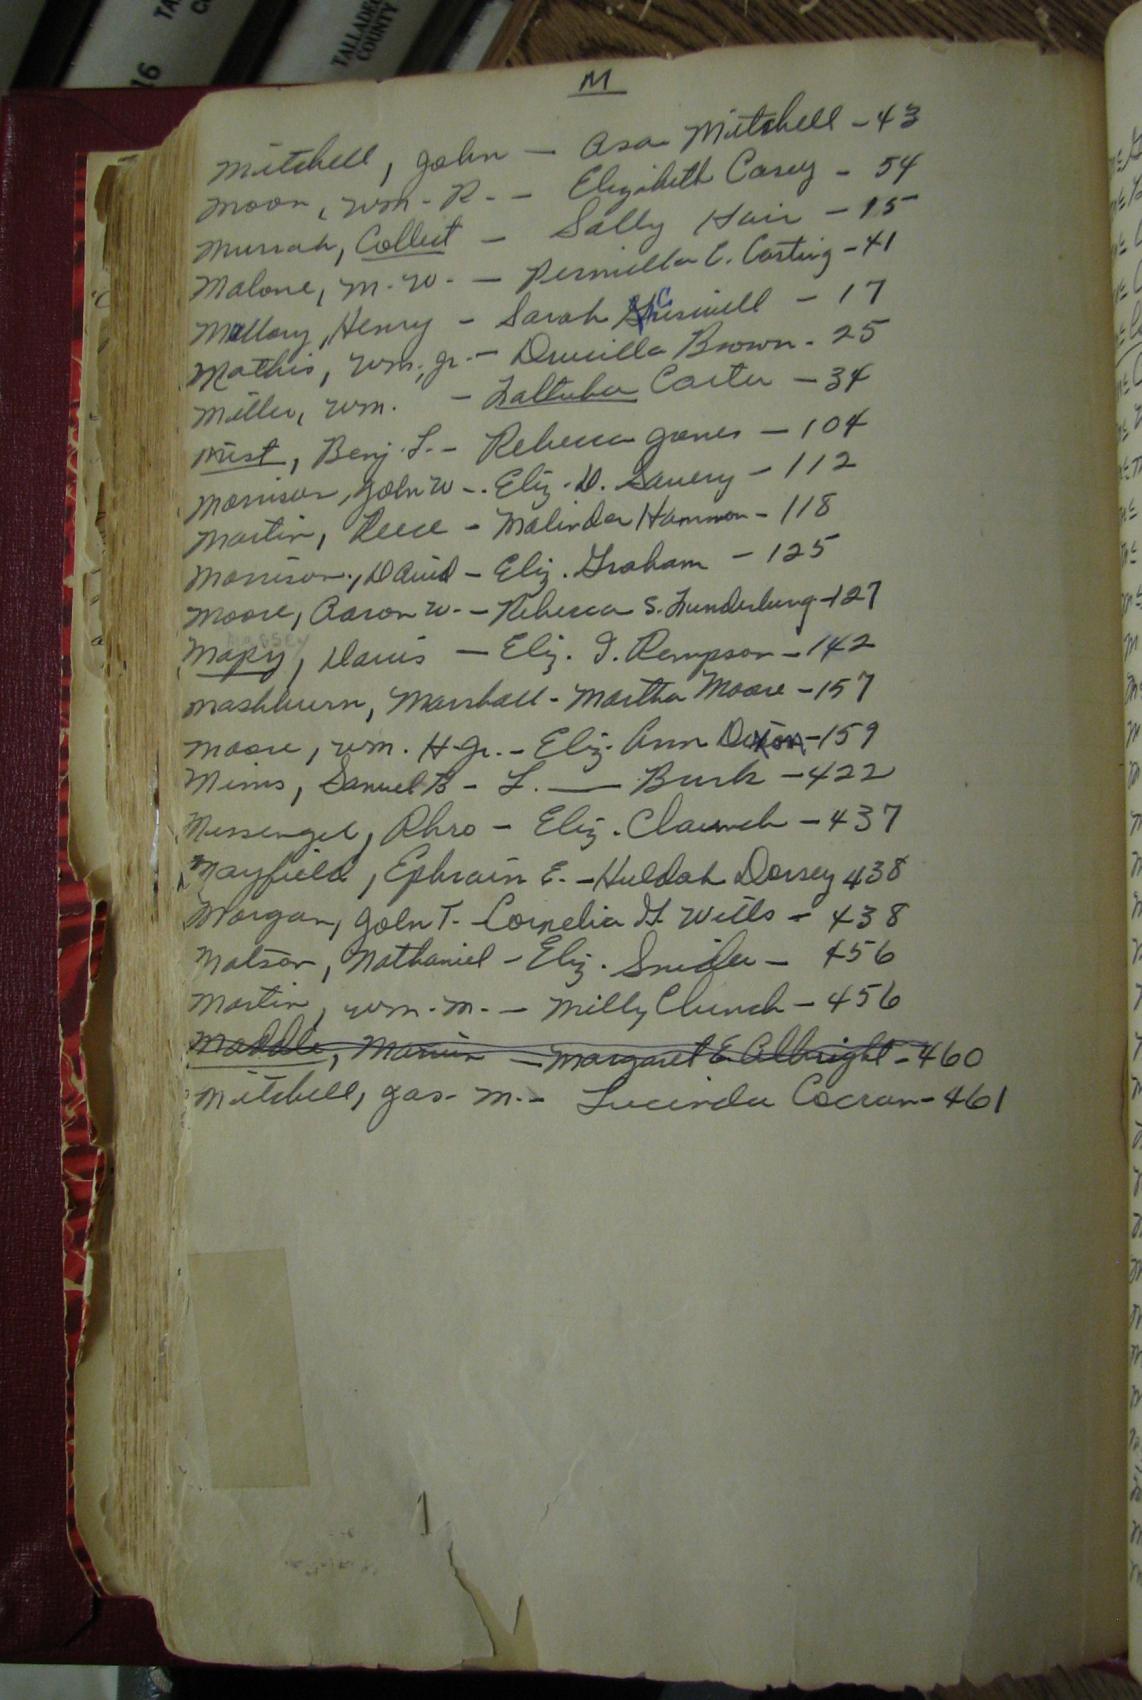 16
TALLADEGA
COUNTY
M
Mitchell, John — Asa Mitchell - 43
Moon, Wm. R. — Elizabeth Casey - 54
Murrah, Collect — Sally Hair - 15
Malone, M. W. — Permilla C. Casting - 41
Mallory, Henry - Sarah - 17
Mathis, Wm. Jr. - Drucilla Brown - 25
Miller, Wm. - Carter - 34
Mist, Benj. L. - Rebecca Jones - 104
Morrison, John W - Eliz. D. Savery - 112
Martin, Reece - Malinda Hammon - 118
Morrison, David - Eliz. Graham - 125
Moore, Aaron W. - Rebecca S. Lunderburg - 127
Massey
Mapy, Davis - Eliz. I. Rempson - 142
Mashburn, Marshall - Martha Moore - 157
Moore, Wm. H. Jr. - Eliz. Ann Dixon - 159
Mims, Samuel B - L. — Burk - 422
Messengel, Rhro - Eliz. Claunch - 437
Mayfield, Ephraim E. - Huldah Dorsey 438
Morgan, John T. - Cornelia G. Wills - 438
Matson, Nathaniel - Eliz. Snider - 456
Martin, Wm. M. - Milly Clunch - 456
Maddle, Marvin - Margaret E. Albright - 460
Mitchell, Jas. M. - Lucinda Cocran - 461